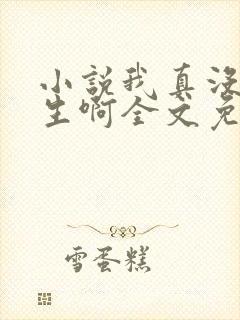 小説我真没
生啊全文免
雪蛋糕